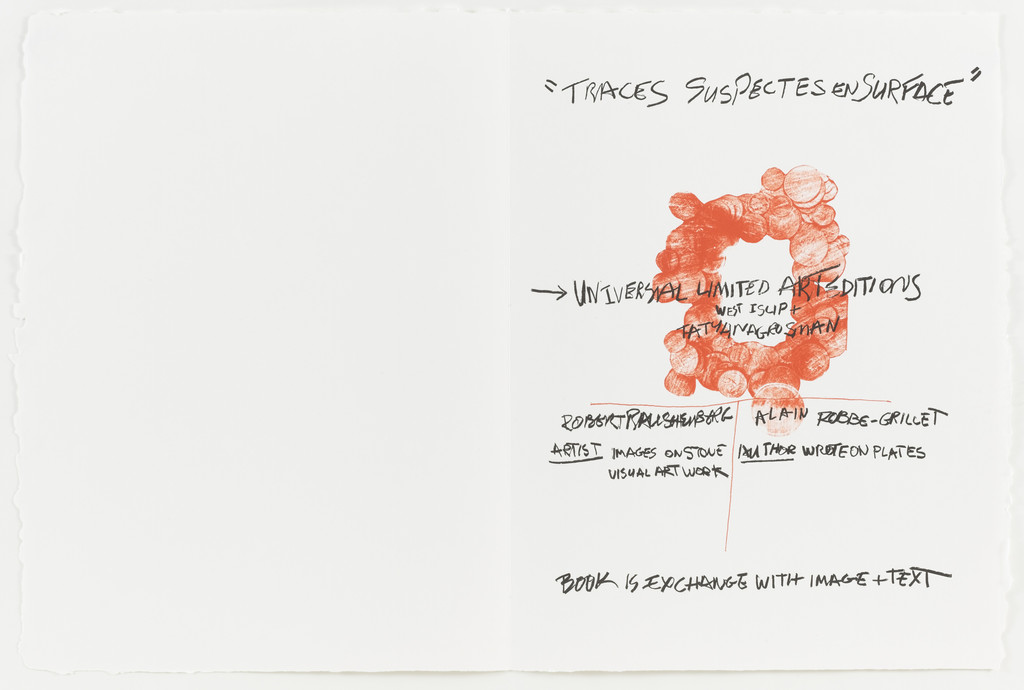 "TRACES SUSPECTES EN SURFACE"
→ UNIVERSAL LIMITED ART EDITIONS
WEST ISLIP +
TATYANA GROSMAN
ROBERT RAUSHENBERG
ARTIST IMAGES ON STONE
VISUAL ART WORK
ALAIN ROBBE-GRILLET
AUTHOR WROTE ON PLATES
BOOK IS EXCHANGE WITH IMAGE + TEXT